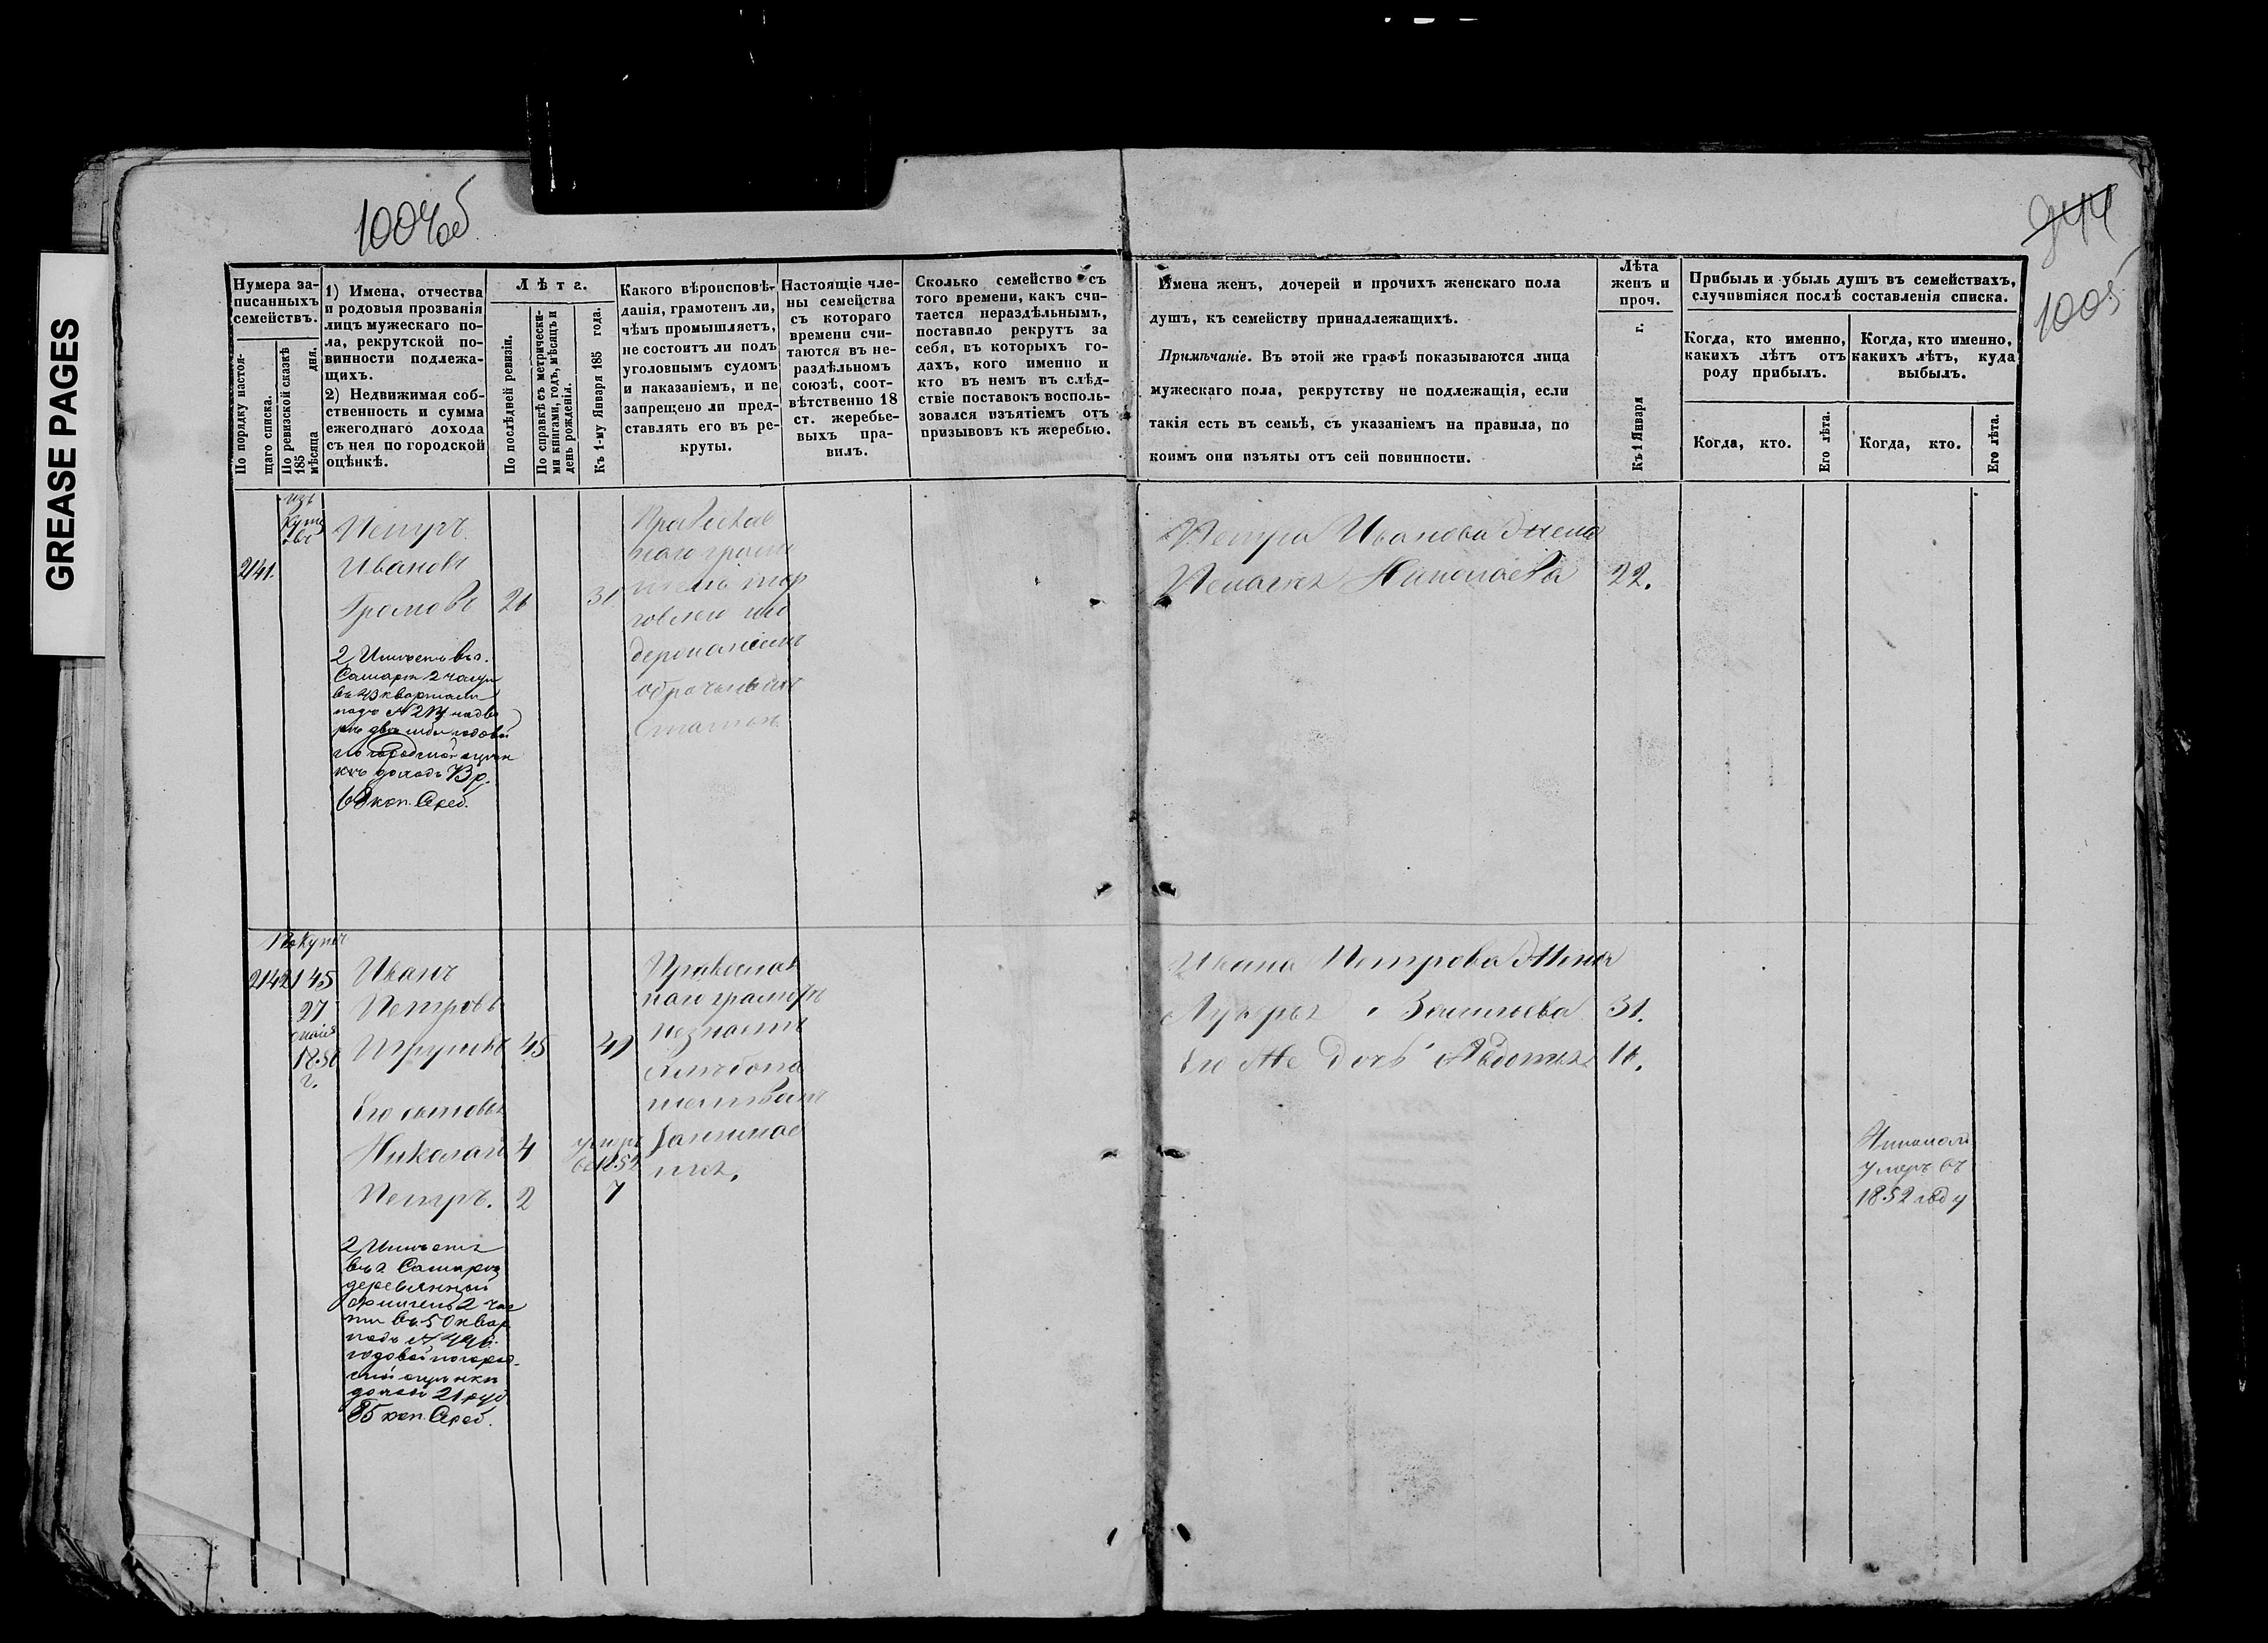 GREASE PAGES
1004об
1005
Нумера за-
писанныхъ
семействъ.
По порядку настоя-
щаго списка.
По ревизской сказкѣ
185 дня.
мѣсяца
1) Имена, отчества
и родовыя прозванія
лицъ мужескаго по-
ла, рекрутской по-
винности подлежа-
щихъ.
2) Недвижимая соб-
ственность и сумма
ежегоднаго дохода
съ нея по городской
оцѣнкѣ.
Лѣтъ.
По послѣдней ревизіи.
По справкѣ съ метрически-
ми книгами, годъ, мѣсяцъ и
день рожденія.
Къ 1-му Января 185 года.
Какого вѣроисповѣ-
данія, грамотенъ ли,
чѣмъ промышляетъ,
не состоитъ ли подъ
уголовнымъ судомъ
и наказаніемъ, и не
запрещено ли пред-
ставлять его въ ре-
круты.
Настоящіе чле-
ны семейства
съ котораго
времени счи-
таются въ не-
раздѣльномъ
союзѣ, соот-
вѣтственно 18
ст. жеребье-
выхъ пра-
вилъ.
Сколько семейство съ
того времени, какъ счи-
тается нераздѣльнымъ,
поставило рекрутъ за
себя, въ которыхъ го-
дахъ, кого именно и
кто въ немъ въ слѣд-
ствіе поставокъ восполь-
зовался изъятіемъ отъ
призывовъ къ жеребью.
Имена женъ, дочерей и прочихъ женскаго пола
душъ, къ семейству принадлежащихъ.
Примѣчаніе. Въ этой же графѣ показываются лица
мужескаго пола, рекрутству не подлежащія, если
такія есть въ семьѣ, съ указаніемъ на правила, по
коимъ они изъяты отъ сей повинности.
Лѣта
женъ и
проч.
Къ 1 Января г.
Прибыль и убыль душъ въ семействахъ,
случившіяся послѣ составленія списка.
Когда, кто именно,
какихъ лѣтъ отъ
роду прибылъ.
Когда, кто именно,
какихъ лѣтъ, куда
выбылъ.
Когда, кто.
Его лѣта.
Когда, кто.
Его лѣта.
изъ
2141.
Петръ
Ивановъ
Громовъ 26 31
2 Имѣетъ въ г.
Самарѣ 2 части
въ 43 квартале
по городской оцен
кѣ доходъ 73 р.
68 коп. Сереб.
Православ
наго
Петра Иванова Жена
Пелагея Николаева 22.
2142 145
27
маія
1850
г.
Иванъ
Петровъ
45 49
Его сыновья
Николай 4 умеръ
въ 1852
Петръ. 2 7
2 Имѣетъ
въ г Самарѣ
деревянный
флигель 2 час
ти въ 50 квар
годовой по город-
ской оцѣнки
доходъ 21 руб
85 коп. Сереб.
Православ
наго грамотѣ
незнаетъ
хлѣбопа
шествомъ
занимае
тся.
Ивана Петрова Жена
Лукерья Васильева 31.
Его же дочь Авдотья 11.
Николай
умеръ въ
1852 году